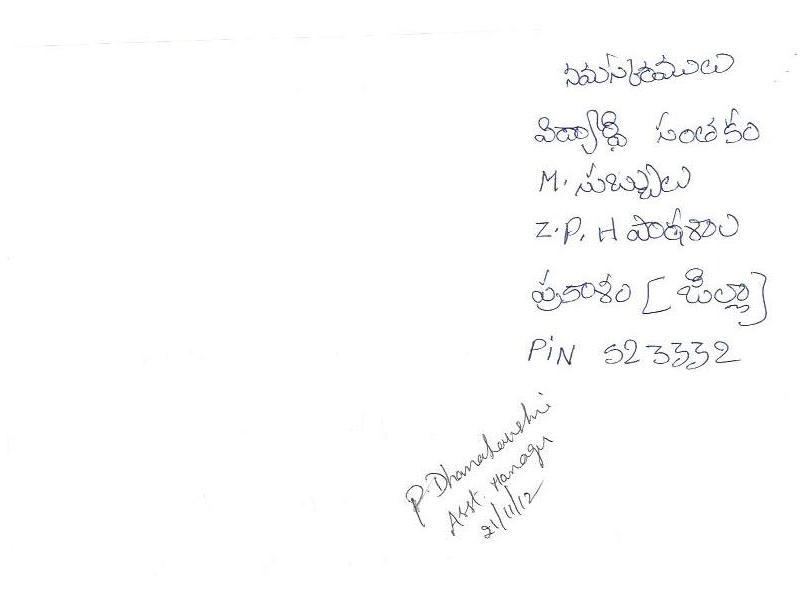 నమస్కారములు
విద్యార్థి సంతకం
M. సుబ్బులు
Z.P.H పాఠశాల
ప్రకాశం [జిల్లా]
PiN 523332
Asst. Manager
21/11/12